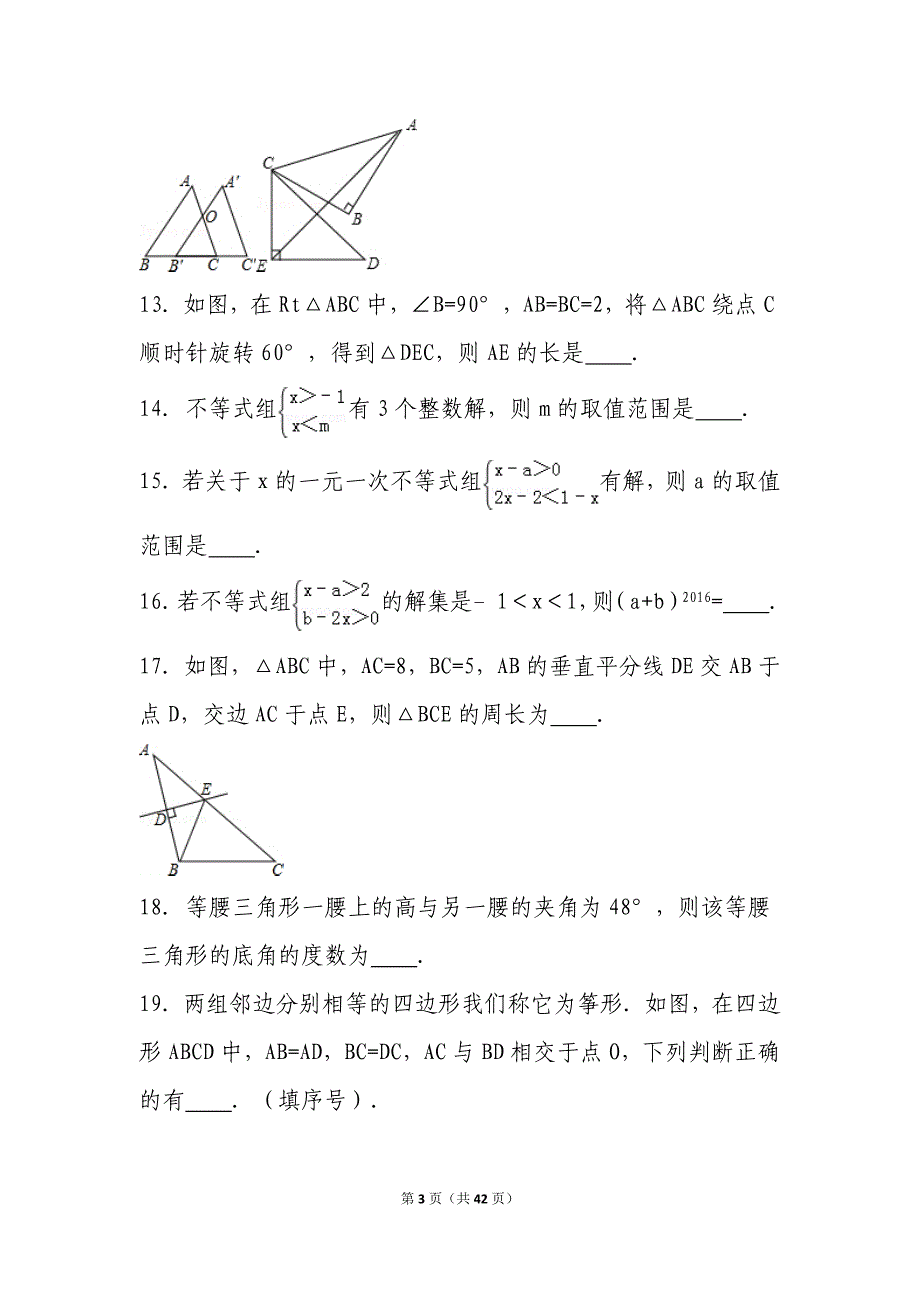 A
C
A A'
O
B
B B' C C' E D
13．如图，在 Rt△ABC 中，∠B=90°，AB=BC=2，将△ABC 绕点 C
顺时针旋转 60°，得到△DEC，则 AE 的长是____．
14．不等式组{x＞-1 x＜m 有 3 个整数解，则 m 的取值范围是____．
15．若关于 x 的一元一次不等式组{x-a＞0 2x-2＜1-x 有解，则 a 的取值
范围是____．
16．若不等式组{x-a＞2 b-2x＞0 的解集是﹣1＜x＜1，则（a+b）²⁰¹⁶=____．
17．如图，△ABC 中，AC=8，BC=5，AB 的垂直平分线 DE 交 AB 于
点 D，交边 AC 于点 E，则△BCE 的周长为____．
A
E
D
B C
18．等腰三角形一腰上的高与另一腰的夹角为 48°，则该等腰
三角形的底角的度数为____．
19．两组邻边分别相等的四边形我们称它为筝形．如图，在四边
形 ABCD 中，AB=AD，BC=DC，AC 与 BD 相交于点 O，下列判断正确
的有____．（填序号）．
第 3 页（共 42 页）